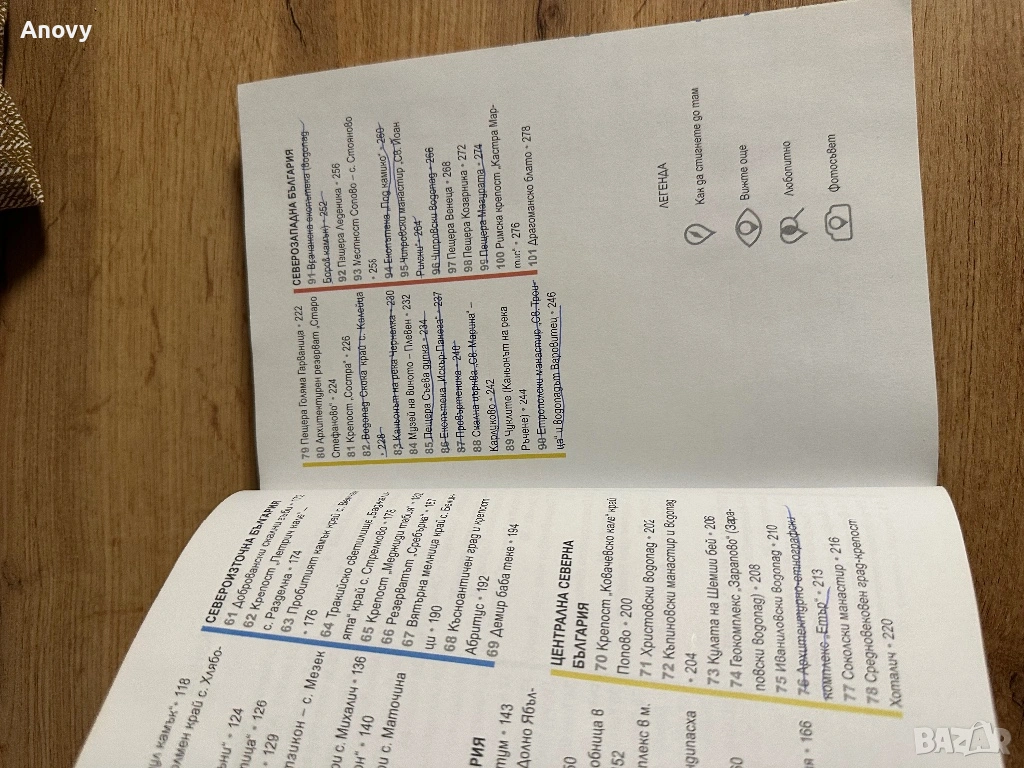 Anovy
ул камък“ • 118
олмен край с. Хлябо-
ъни“ • 124
пица“ • 126
• 129
пзикон – с. Мезек
ри с. Михалич • 136
он“ • 140
ри с. Маточина
РИЯ
тум • 143
Долно Ябъл-
обница в
152
плекс в м.
ндипасха
60
ия • 166
СЕВЕРОИЗТОЧНА БЪЛГАРИЯ
61 Добровански скални гъби • 172
62 Крепост „Петрич кале“ –
с. Разделна • 174
63 Пробитият камък край с.
• 176
64 Тракийско светилище
ята“ край с. Стрелково • 178
65 Крепост „Меджиди табия“ • 182
66 Резерватът „Сребърна“ • 187
67 Вятърна мелница край с.
ци • 190
68 Късноантичен град и крепост
Абритус • 192
69 Демир баба теке • 194
ЦЕНТРАЛНА СЕВЕРНА
БЪЛГАРИЯ
70 Крепост „Ковачевско кале“ край
Попово • 200
71 Христовски водопад • 202
72 Къпиновски манастир и водопад
• 204
73 Кулата на Шемши бей • 206
74 Геокомплекс „Зарапово“ (Зара-
повски водопад) • 208
75 Иваниловски водопад • 210
76 Архитектурно-етнографски
комплекс „Етър“ • 213
77 Соколски манастир • 216
78 Средновековен град-крепост
Хоталич • 220
79 Пещера Голяма Гарваница • 222
80 Архитектурен резерват „Старо
Стефаново“ • 224
81 Крепост „Состра“ • 226
82 Водопад Скока край с. Калейца
• 228
83 Каньонът на река Чернелка • 230
84 Музей на виното – Плевен • 232
85 Пещера Съева дупка • 234
86 Екопътека „Искър-Панега“ • 237
87 Провъртеника • 240
88 Скална църква „Св. Марина“ –
Карлуково • 242
89 Чуклите (Каньонът на река
Ръчене) • 244
90 Етрополски манастир „Св. Трои-
ца“ и водопадът Варовитец • 246
СЕВЕРОЗАПАДНА БЪЛГАРИЯ
91 Врачанска екопътека (водопад
Боров камък) • 252
92 Пещера Леденика • 256
93 Местност Сопово – с. Стояново
• 258
94 Екопътека „Под камико“ • 260
95 Чипровски манастир „Св. Йоан
Рилски“ • 264
96 Чипровски водопад • 266
97 Пещера Венеца • 268
98 Пещера Козарника • 272
99 Пещера Магурата • 274
100 Римска крепост „Кастра Мар-
тис“ • 276
101 Драгоманско блато • 278
ЛЕГЕНДА
Как да стигнете до там
Вижте още
Любопитно
Фотосъвет
BAZAR